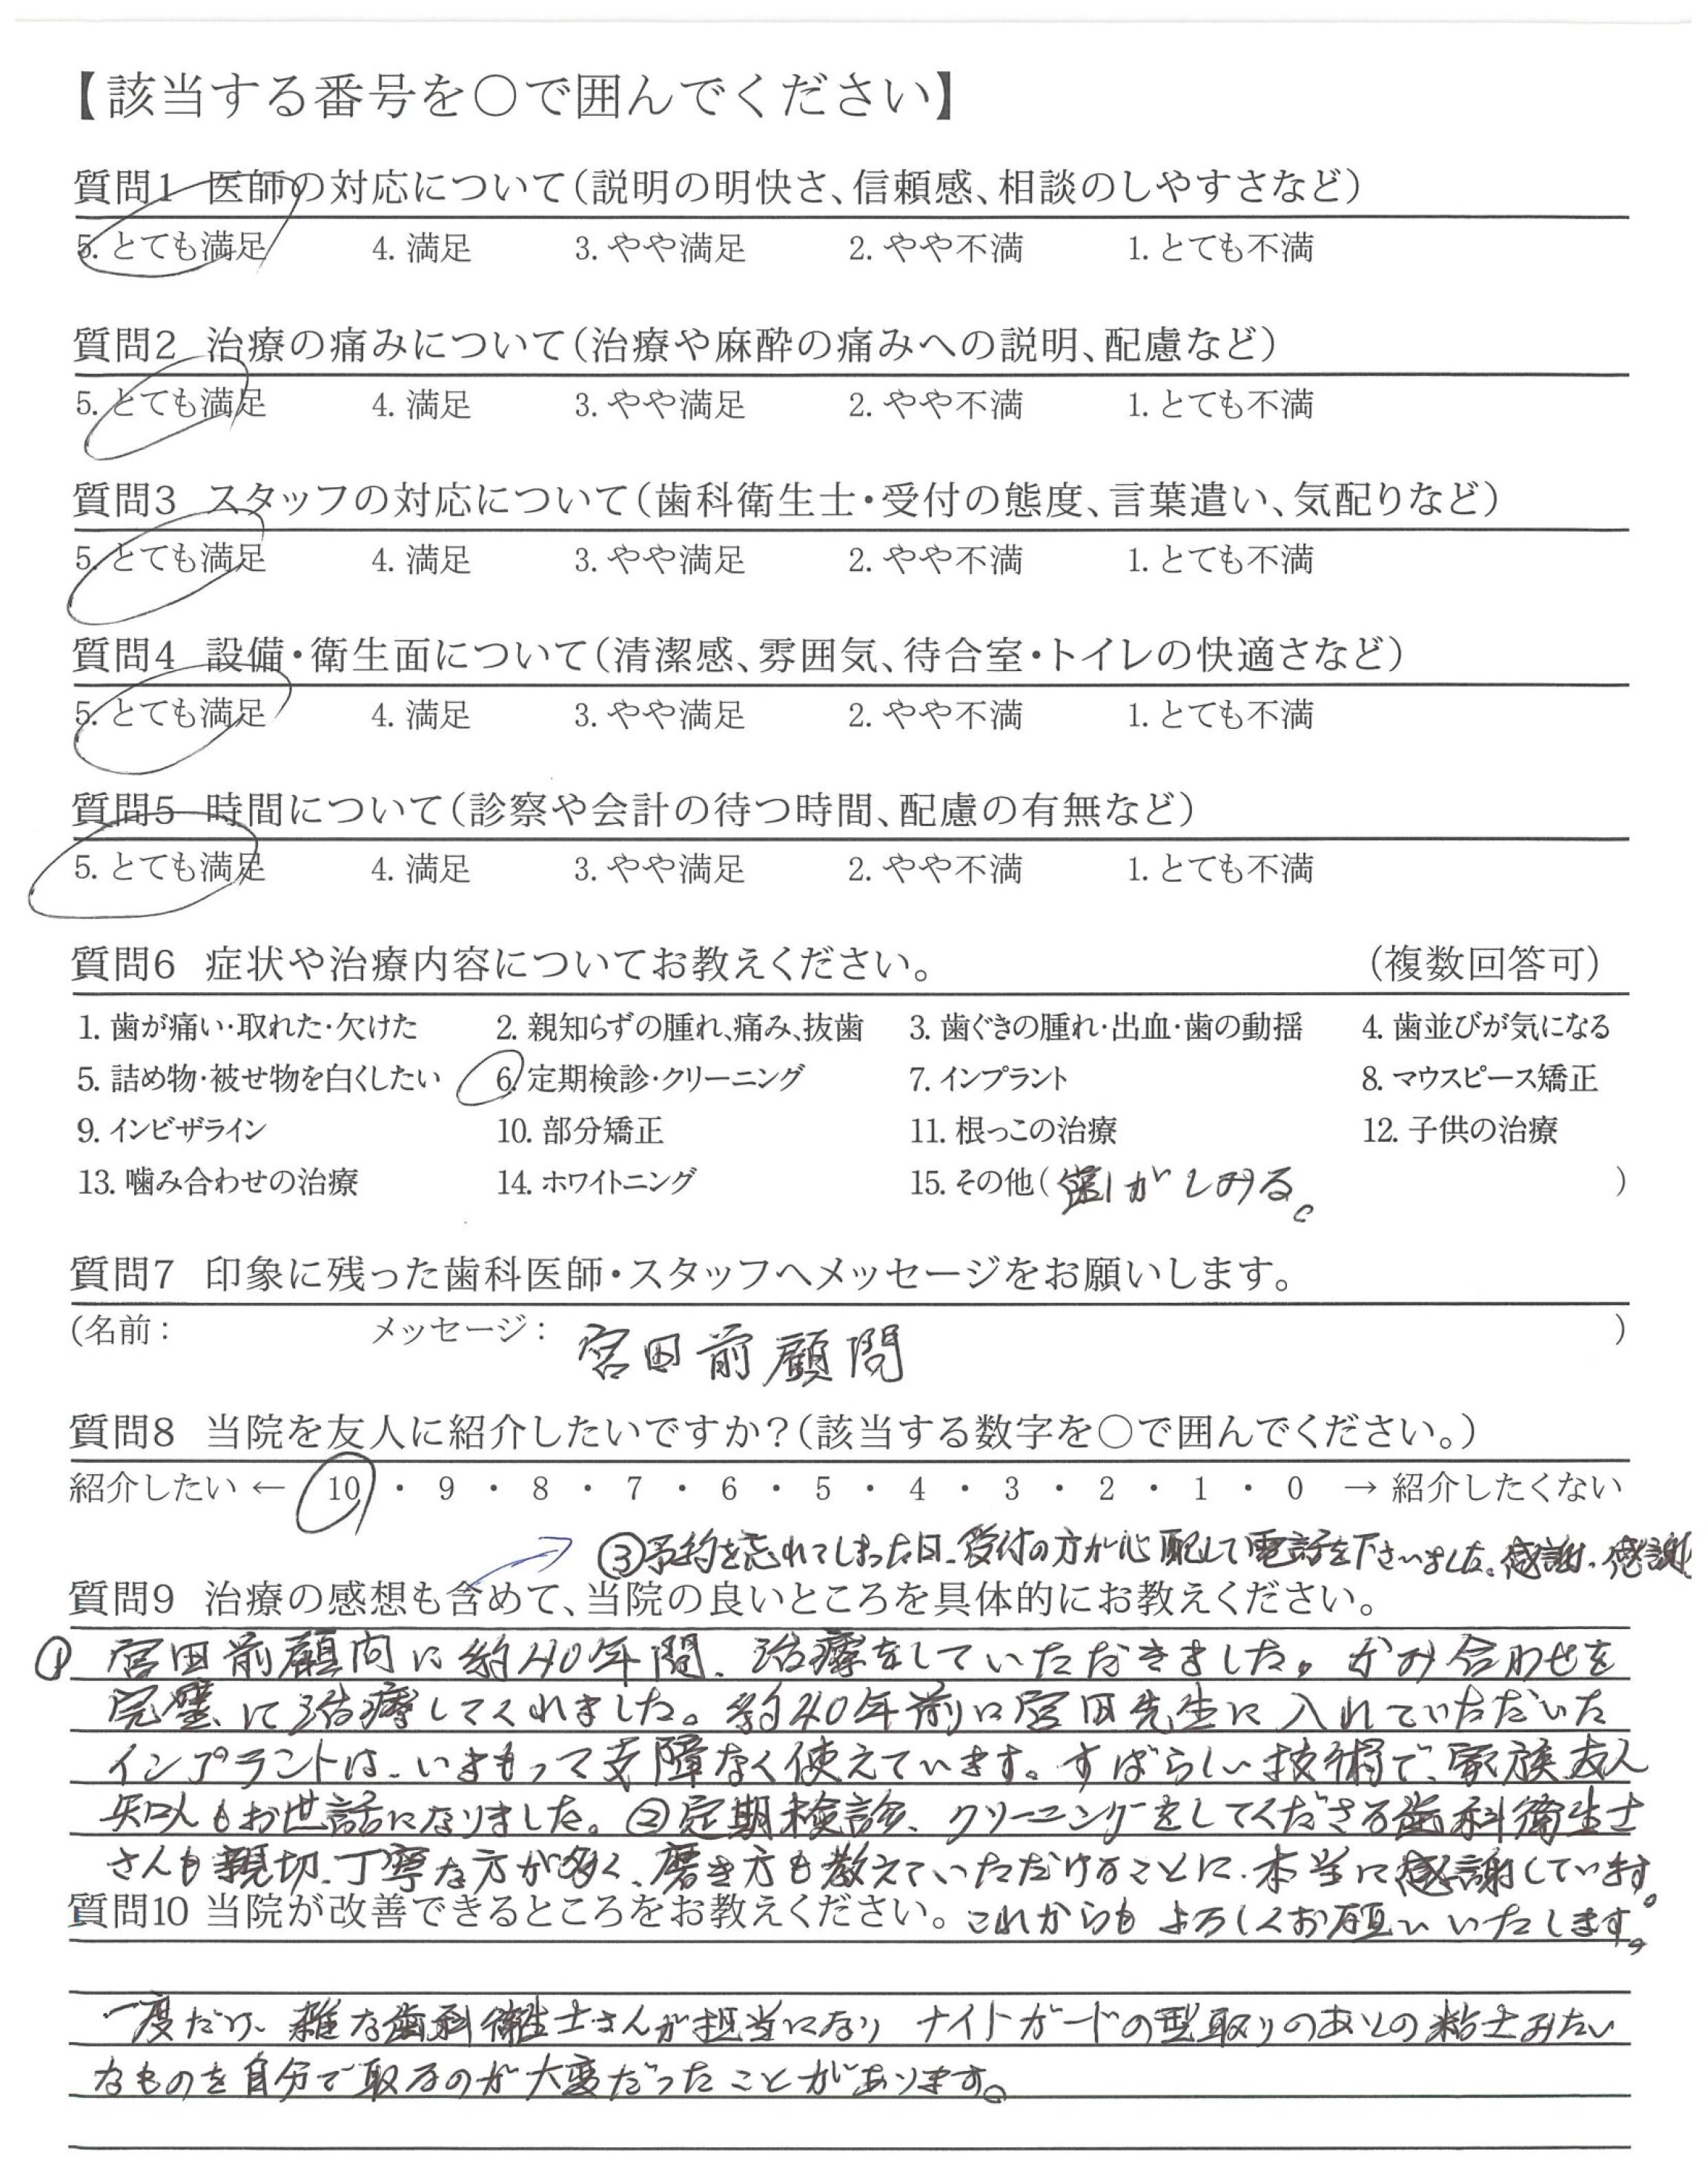 【該当する番号を○で囲んでください】
質問1 医師の対応について(説明の明快さ、信頼感、相談のしやすさなど)
5. とても満足 4. 満足 3. やや満足 2. やや不満 1. とても不満
質問2 治療の痛みについて(治療や麻酔の痛みへの説明、配慮など)
5. とても満足 4. 満足 3. やや満足 2. やや不満 1. とても不満
質問3 スタッフの対応について(歯科衛生士・受付の態度、言葉遣い、気配りなど)
5. とても満足 4. 満足 3. やや満足 2. やや不満 1. とても不満
質問4 設備・衛生面について(清潔感、雰囲気、待合室・トイレの快適さなど)
5. とても満足 4. 満足 3. やや満足 2. やや不満 1. とても不満
質問5 時間について(診察や会計の待つ時間、配慮の有無など)
5. とても満足 4. 満足 3. やや満足 2. やや不満 1. とても不満
質問6 症状や治療内容についてお教えください。 (複数回答可)
1. 歯が痛い・取れた・欠けた 2. 親知らずの腫れ、痛み、抜歯 3. 歯ぐきの腫れ・出血・歯の動揺 4. 歯並びが気になる
5. 詰め物・被せ物を白くしたい 6. 定期検診・クリーニング 7. インプラント 8. マウスピース矯正
9. インビザライン 10. 部分矯正 11. 根っこの治療 12. 子供の治療
13. 噛み合わせの治療 14. ホワイトニング 15. その他(歯がしみる。)
質問7 印象に残った歯科医師・スタッフへメッセージをお願いします。
(名前: メッセージ: 宮田前顧問 )
質問8 当院を友人に紹介したいですか?(該当する数字を○で囲んでください。)
紹介したい ← 10 ・ 9 ・ 8 ・ 7 ・ 6 ・ 5 ・ 4 ・ 3 ・ 2 ・ 1 ・ 0 → 紹介したくない
③予約を忘れてしまった日、受付の方が心配して電話を下さいました。感謝、感謝
質問9 治療の感想も含めて、当院の良いところを具体的にお教えください。
① 宮田前顧問に約40年間、治療をしていただきました。かみ合わせを
完璧に治療してくれました。約40年前に宮田先生に入れていただいた
インプラントは、いまもって支障なく使えています。すばらしい技術で、家族、友人
知人もお世話になりました。②定期検診、クリーニングをしてくださる歯科衛生士
さんも親切、丁寧な方が多く、磨き方も教えていただけることに、本当に感謝しています。
質問10 当院が改善できるところをお教えください。これからもよろしくお願いいたします。
一度だけ、雑な歯科衛生士さんが担当になり ナイトガードの型取りのあとの粘土みたい
なものを自分で取るのが大変だったことがあります。